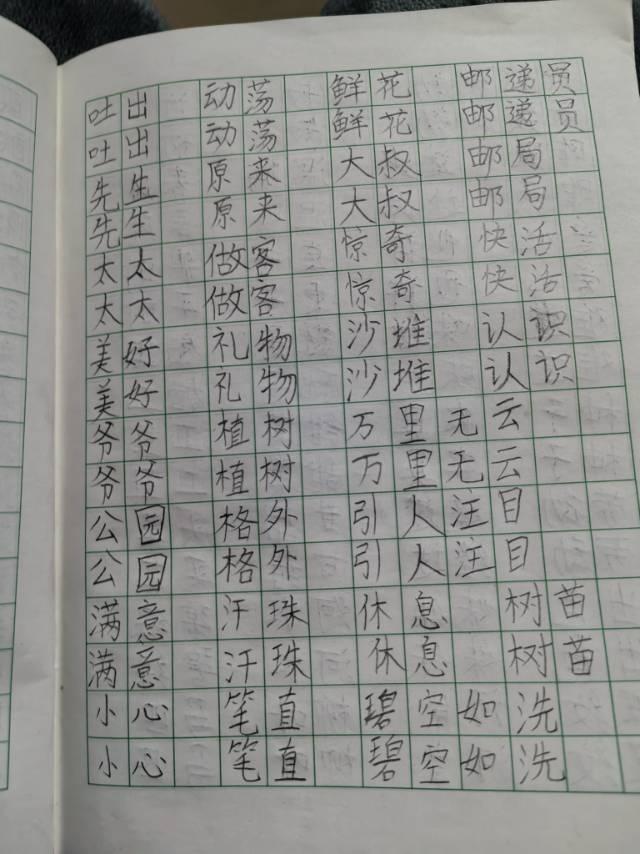 吐出 动荡 鲜花 邮递员
吐出 动荡 鲜花 邮递员
先生 原来 大叔 邮局
先生 原来 大叔 邮局
太太 做客 惊奇 快活
太太 做客 惊奇 快活
美好 礼物 沙堆 认识
美好 礼物 沙堆 认识
爷爷 植树 万里无云
爷爷 植树 万里无云
公园 格外 引人注目
公园 格外 引人注目
满意 汗珠 休息 树苗
满意 汗珠 休息 树苗
小心 笔直 碧空如洗
小心 笔直 碧空如洗